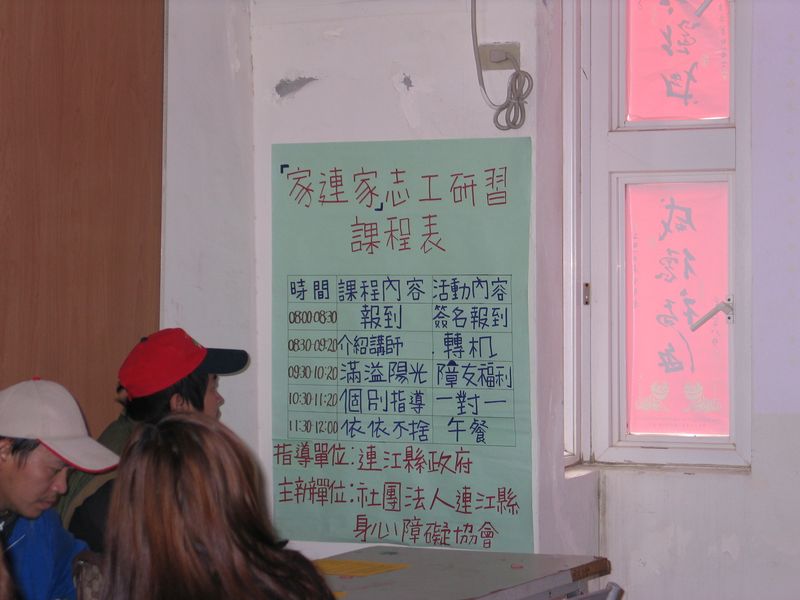 「家連家」志工研習
課程表
時間 課程內容 活動內容
08:00-08:30 報到 簽名報到
08:30-09:20 介紹講師 轉机
09:30-10:20 滿溢陽光 障友福利
10:30-11:20 個別指導 一對一
11:30-12:00 依依不捨 午餐
指導單位:連江縣政府
主辦單位:社團法人連江縣
身心障礙協會